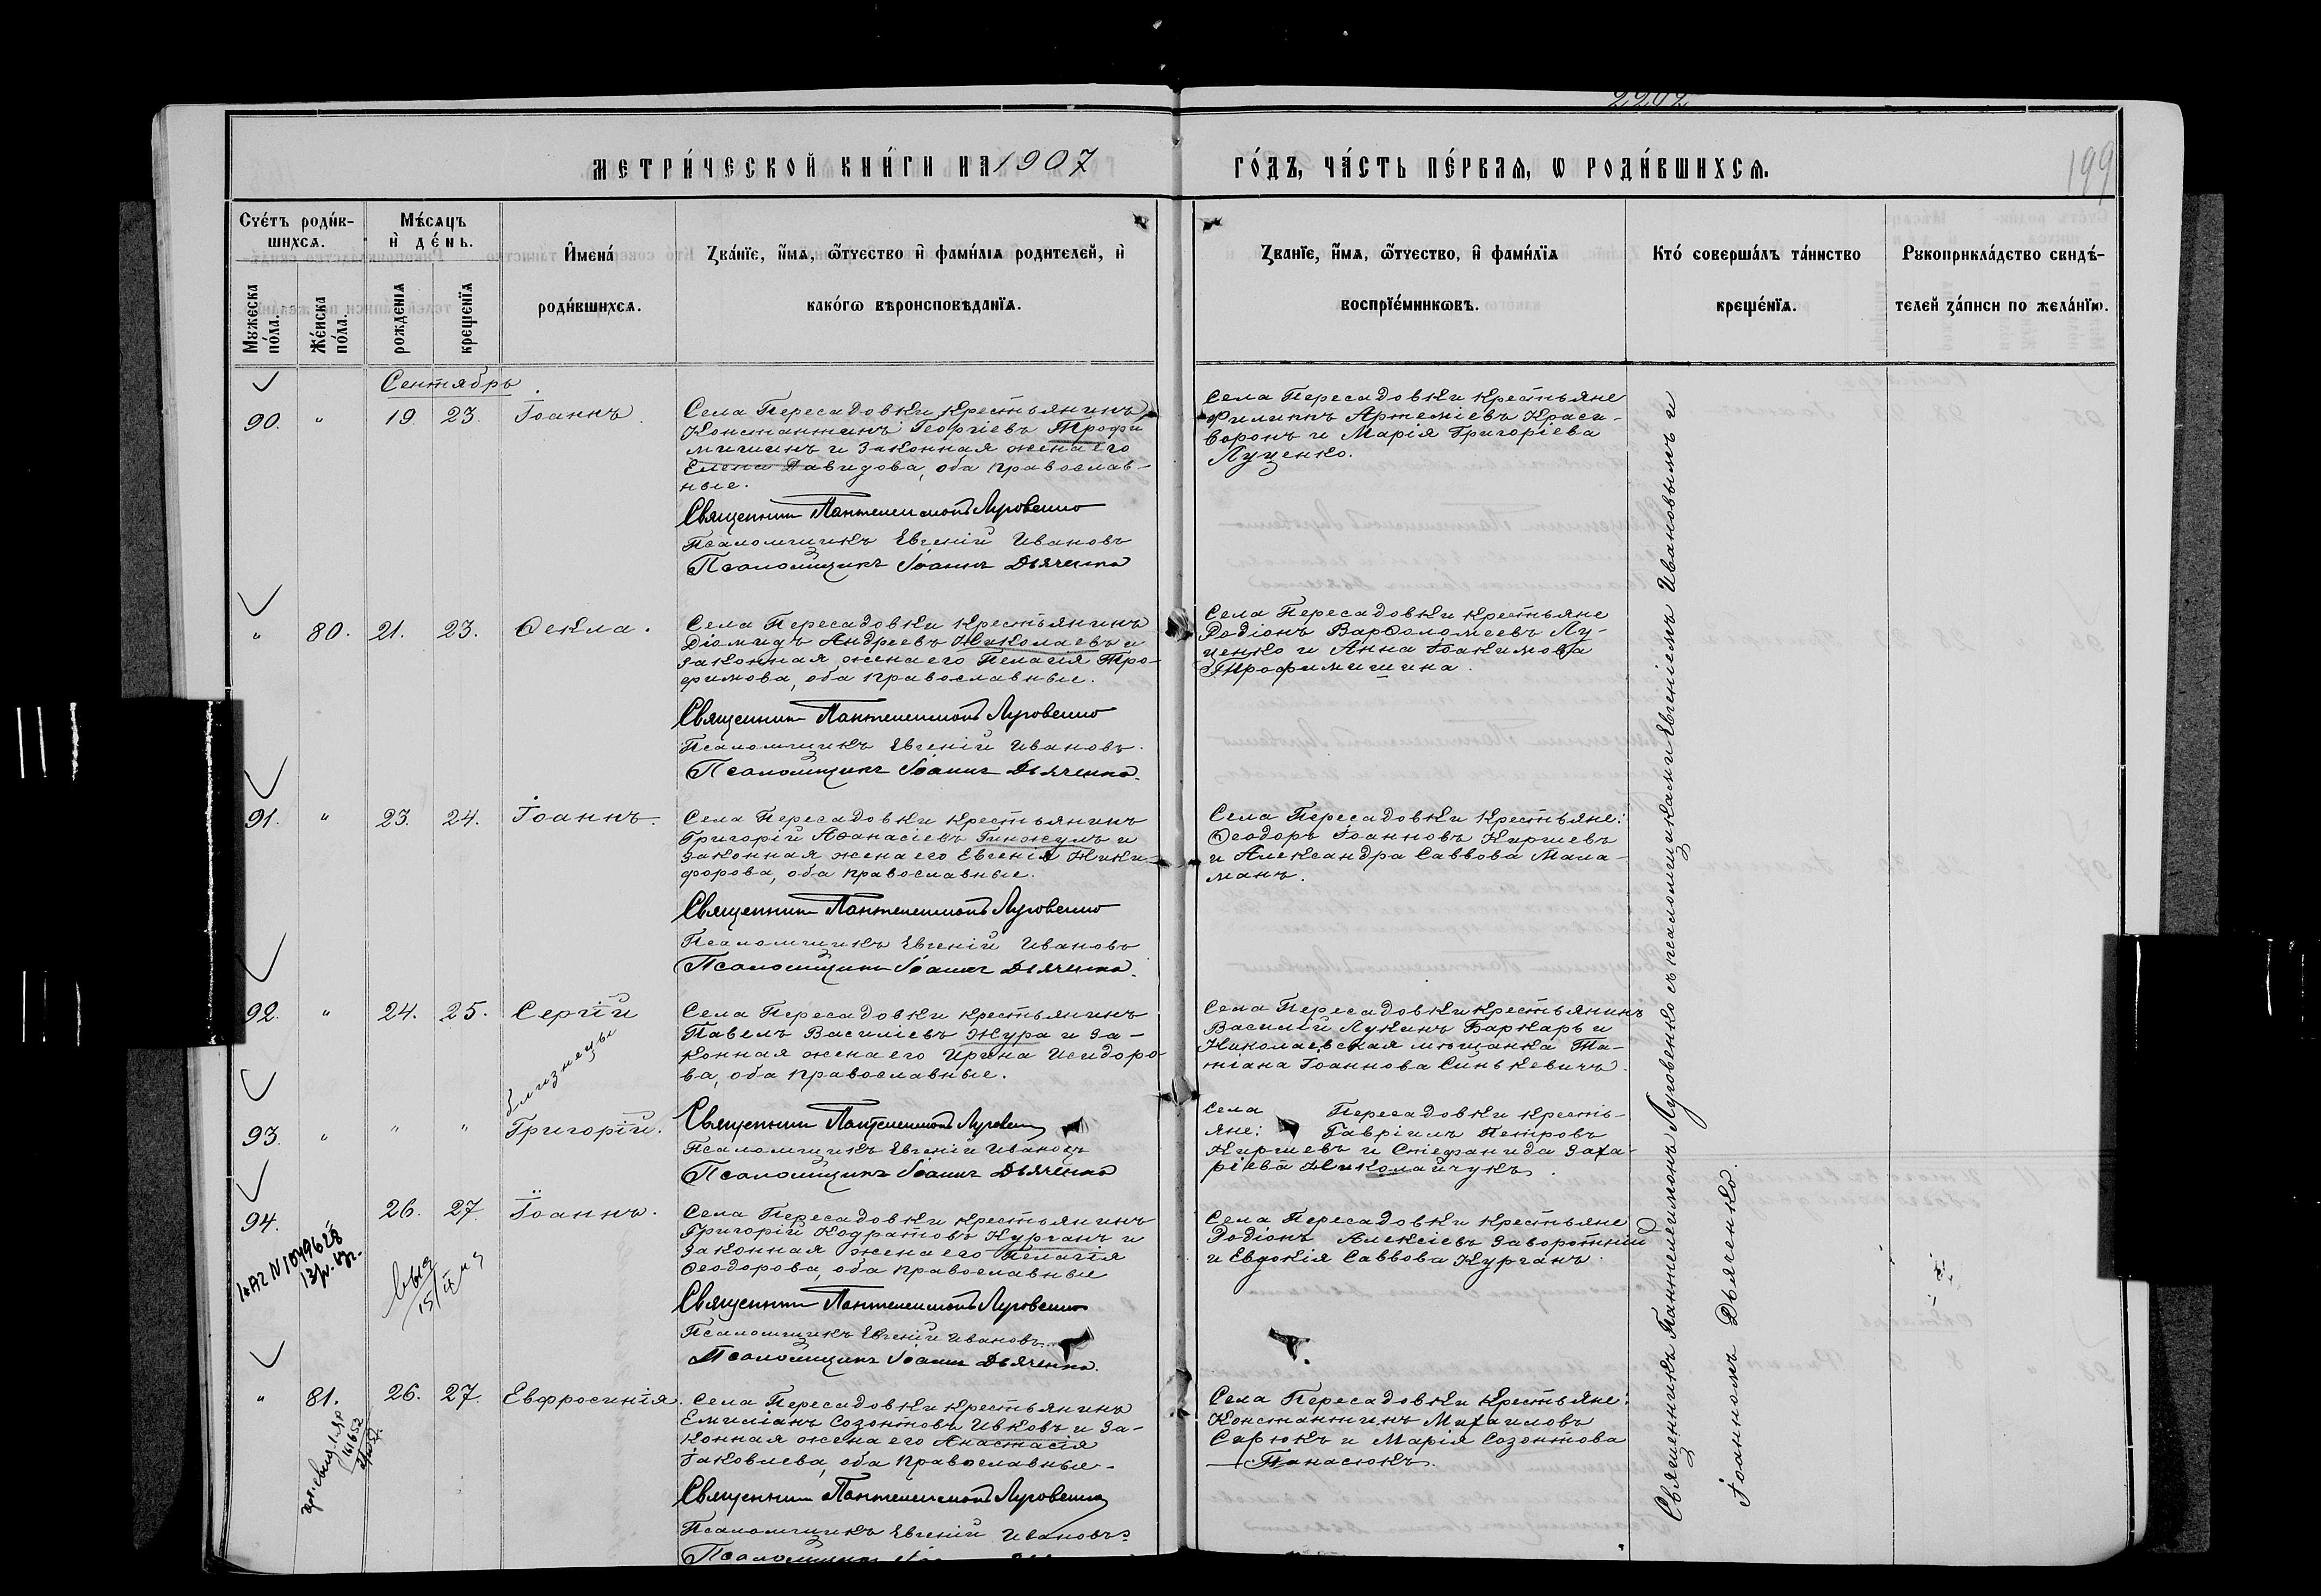 2202
МЕТРИ́ЧЕСКОЙ КНИ́ГИ НА 1907
ГО́ДЪ, ЧА́СТЬ ПЕ́РВАѦ, Ѡ РОДИ́ВШИХСѦ.
199
Счéтъ роди́в-
шихсѧ.
Мѣ́сѧцъ
и҆ дéнь.
Мꙋжеска
по́ла.
Же́нска
по́ла.
рожденїѧ
крещенїѧ
И҆мена́
роди́вшихсѧ.
Зва́нїе, и҆́мѧ, ѻ҆́тчество и҆ фами́лїѧ родителей, и҆
како́гѡ вѣроисповѣданїѧ.
Зва́нїе, и҆́мѧ, ѻ҆́тчество, и҆ фами́лїѧ
воспрїе́мниковъ.
Кто́ соверша́лъ та́инство
креще́нїѧ.
Рꙋкоприкла́дство свидѣ́-
телей за́писи по жела́нїю.
Сентябрь
90. " 19 23. Іоаннъ
Села Пересадовки крестьянинъ
Константинъ Георгіевъ Трофи
мишинъ и законная жена его
Елена Давидова, оба православ-
ные.
Священникъ Пантелеимонъ Луговенко
Псаломщикъ Евгеній Ивановъ
Псаломщикъ Іоаннъ Дьяченко
Села Пересадовки крестьяне
Филиппъ Артеміевъ Краси-
воронъ и Марія Григоріева
Луценко.
" 80. 21. 23. Ѳекла.
Села Пересадовки крестьянинъ
Діомидъ Андреевъ Николаевъ и
законная жена его Пелагія Тро-
фимова, оба православные.
Священникъ Пантелеимонъ Луговенко
Псаломщикъ Евгеній Ивановъ.
Псаломщикъ Іоаннъ Дьяченко.
Села Пересадовки крестьяне
Родіонъ Варѳоломеевъ Лу-
ценко и Анна Іоакимова
Трофимишина.
91. " 23. 24. Іоаннъ.
Села Пересадовки крестьянинъ
Григорій Аѳанасіевъ Гинжулъ и
законная жена его Евгенія Ники-
форова, оба православные.
Священникъ Пантелеимонъ Луговенко
Псаломщикъ Евгеній Ивановъ
Псаломщикъ Іоаннъ Дьяченко.
Села Пересадовки крестьяне:
Ѳеодоръ Іоанновъ Киршевъ
и Александра Саввова Мала-
манъ.
92. " 24. 25. Сергій
близнецы
Села Пересадовки крестьянинъ
Павелъ Василіевъ Жура и за-
конная жена его Ирина Исидоро-
ва, оба православные.
Села Пересадовки крестьянинъ
Василій Лукинъ Баркаръ и
Николаевская мѣщанка Та-
тіана Іоаннова Синькевичъ.
93. " " " Григорій.
Священникъ Пантелеимонъ Луговенко
Псаломщикъ Евгеній Ивановъ
Псаломщикъ Іоаннъ Дьяченко
Села Пересадовки кресть-
яне: Гавріилъ Петровъ
Киршевъ и Стефанида Заха-
ріева Николайчукъ.
94. 26. 27. Іоаннъ.
Села Пересадовки крестьянинъ
Григорій Кодратовъ Курганъ и
законная жена его Пелагія
Ѳеодорова, оба православные
Священникъ Пантелеимонъ Луговенко
Псаломщикъ Евгеній Ивановъ
Псаломщикъ Іоаннъ Дьяченко.
Села Пересадовки крестьяне
Родіонъ Алексіевъ Заворотній
и Евдокія Саввова Курганъ.
" 81. 26. 27. Евфросинія.
Села Пересадовки крестьянинъ
Емиліанъ Созонтовъ Ивковъ и за-
конная жена его Анастасія
Іаковлева, оба православные.
Священникъ Пантелеимонъ Луговенко
Псаломщикъ Евгеній Ивановъ
Псаломщикъ
Села Пересадовки крестьяне:
Константинъ Михаиловъ
Сирюкъ и Марія Созонтова
Панасюкъ.
Священникъ Пантелеимонъ Луговенко съ псаломщиками Евгеніемъ Ивановымъ и
Іоанномъ Дьяченко.